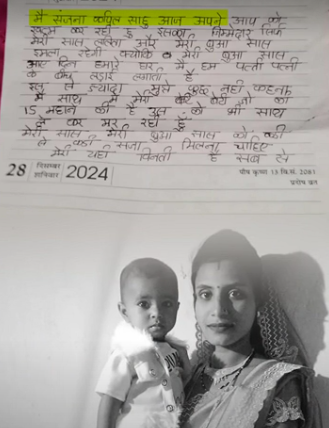 मै संजना कपिल साहू आज अपने आप को
खत्म कर रही हूँ इसका जिम्मेदार सिर्फ
मेरी सास ललिता और मेरी बुआ सास
रहेगी क्योकि मेरी बुआ सास
आए दिन हमारे घर मे हम पति पत्नी
के बीच लड़ाई लगाती है
इस से ज्यादा मुझे कुछ नही कहना
मै साथ मे मेरी बेटी जो की
15 महीने की है उस को भी साथ
ले कर मर रही हूँ
मेरी सास मेरी बुआ सास को कड़ी
से कड़ी सजा मिलना चाहिए
मेरी यही विनती है सब से
28 दिसम्बर शनिवार 2024
पौष कृष्ण 13 वि.सं. 2081
प्रदोष व्रत